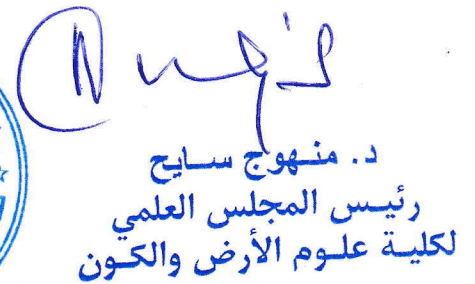 د. منهوج سايح
رئيس المجلس العلمي
لكلية علوم الأرض والكون